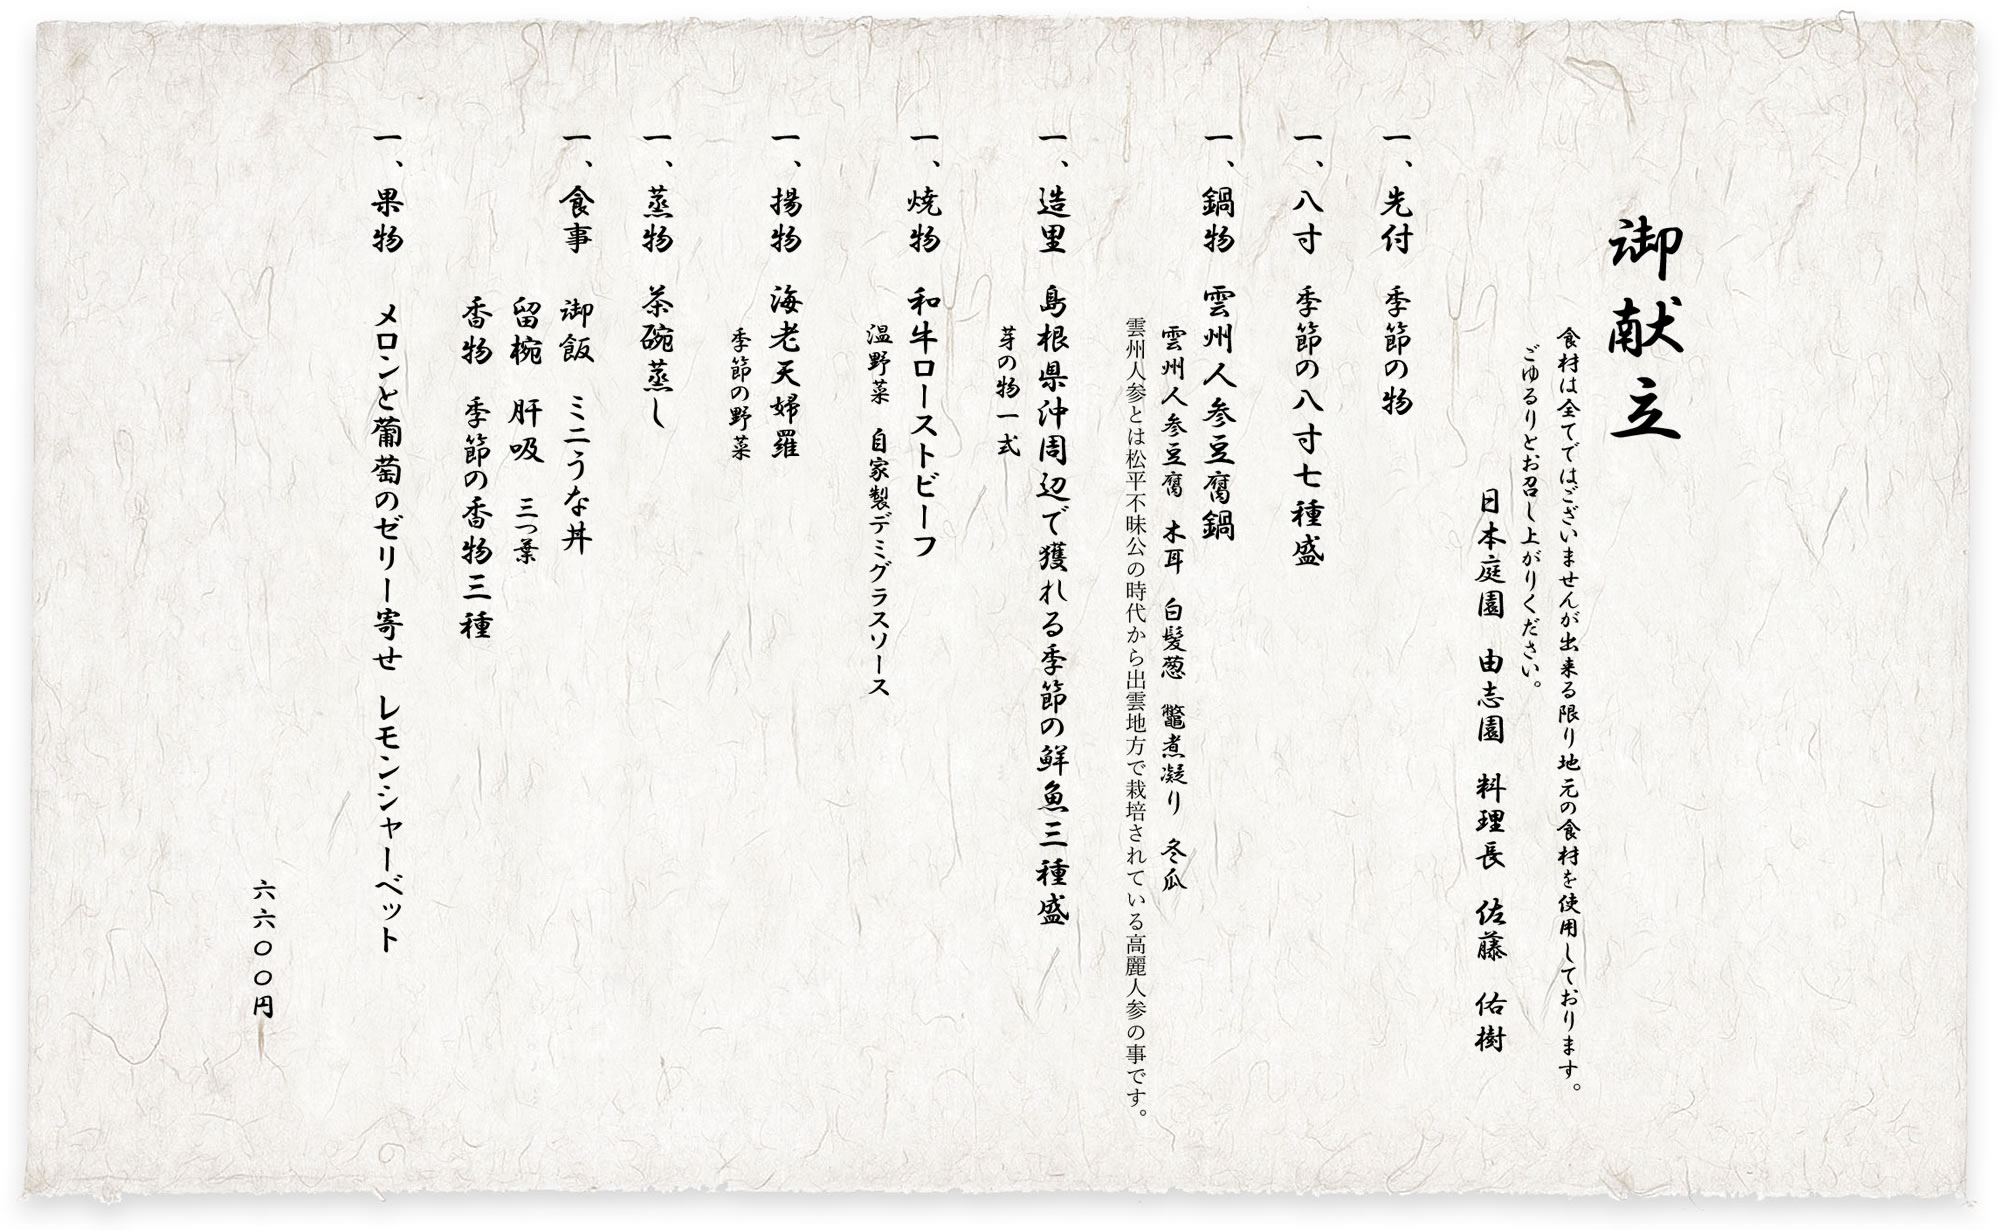 御献立
食材は全てではございませんが出来る限り地元の食材を使用しております。
ごゆるりとお召し上がりください。
日本庭園 由志園 料理長 佐藤 佑樹
一、先付 季節の物
一、八寸 季節の八寸七種盛
一、鍋物 雲州人参豆腐鍋
雲州人参豆腐 木耳 白髪葱 鼈煮凝り 冬瓜
雲州人参とは松平不昧公の時代から出雲地方で栽培されている高麗人参の事です。
一、造里 島根県沖周辺で獲れる季節の鮮魚三種盛
芽の物一式
一、焼物 和牛ローストビーフ
温野菜 自家製デミグラスソース
一、揚物 海老天婦羅
季節の野菜
一、蒸物 茶碗蒸し
一、食事 御飯 ミニうな丼
留椀 肝吸 三つ葉
香物 季節の香物三種
一、果物 メロンと葡萄のゼリー寄せ レモンシャーベット
六六〇〇円